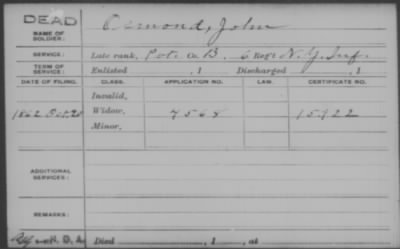 DEAD
NAME OF SOLDIER: Osmond, John
SERVICE: Late rank, Pvt. Co. B, 6 Reg't N.Y. Inf.
TERM OF SERVICE: Enlisted , 1 Discharged , 1
DATE OF FILING. CLASS. APPLICATION NO. LAW. CERTIFICATE NO.
Invalid,
1862 Widow, 7568 15.922
Minor,
ADDITIONAL SERVICES:
REMARKS:
Died , 1 , at